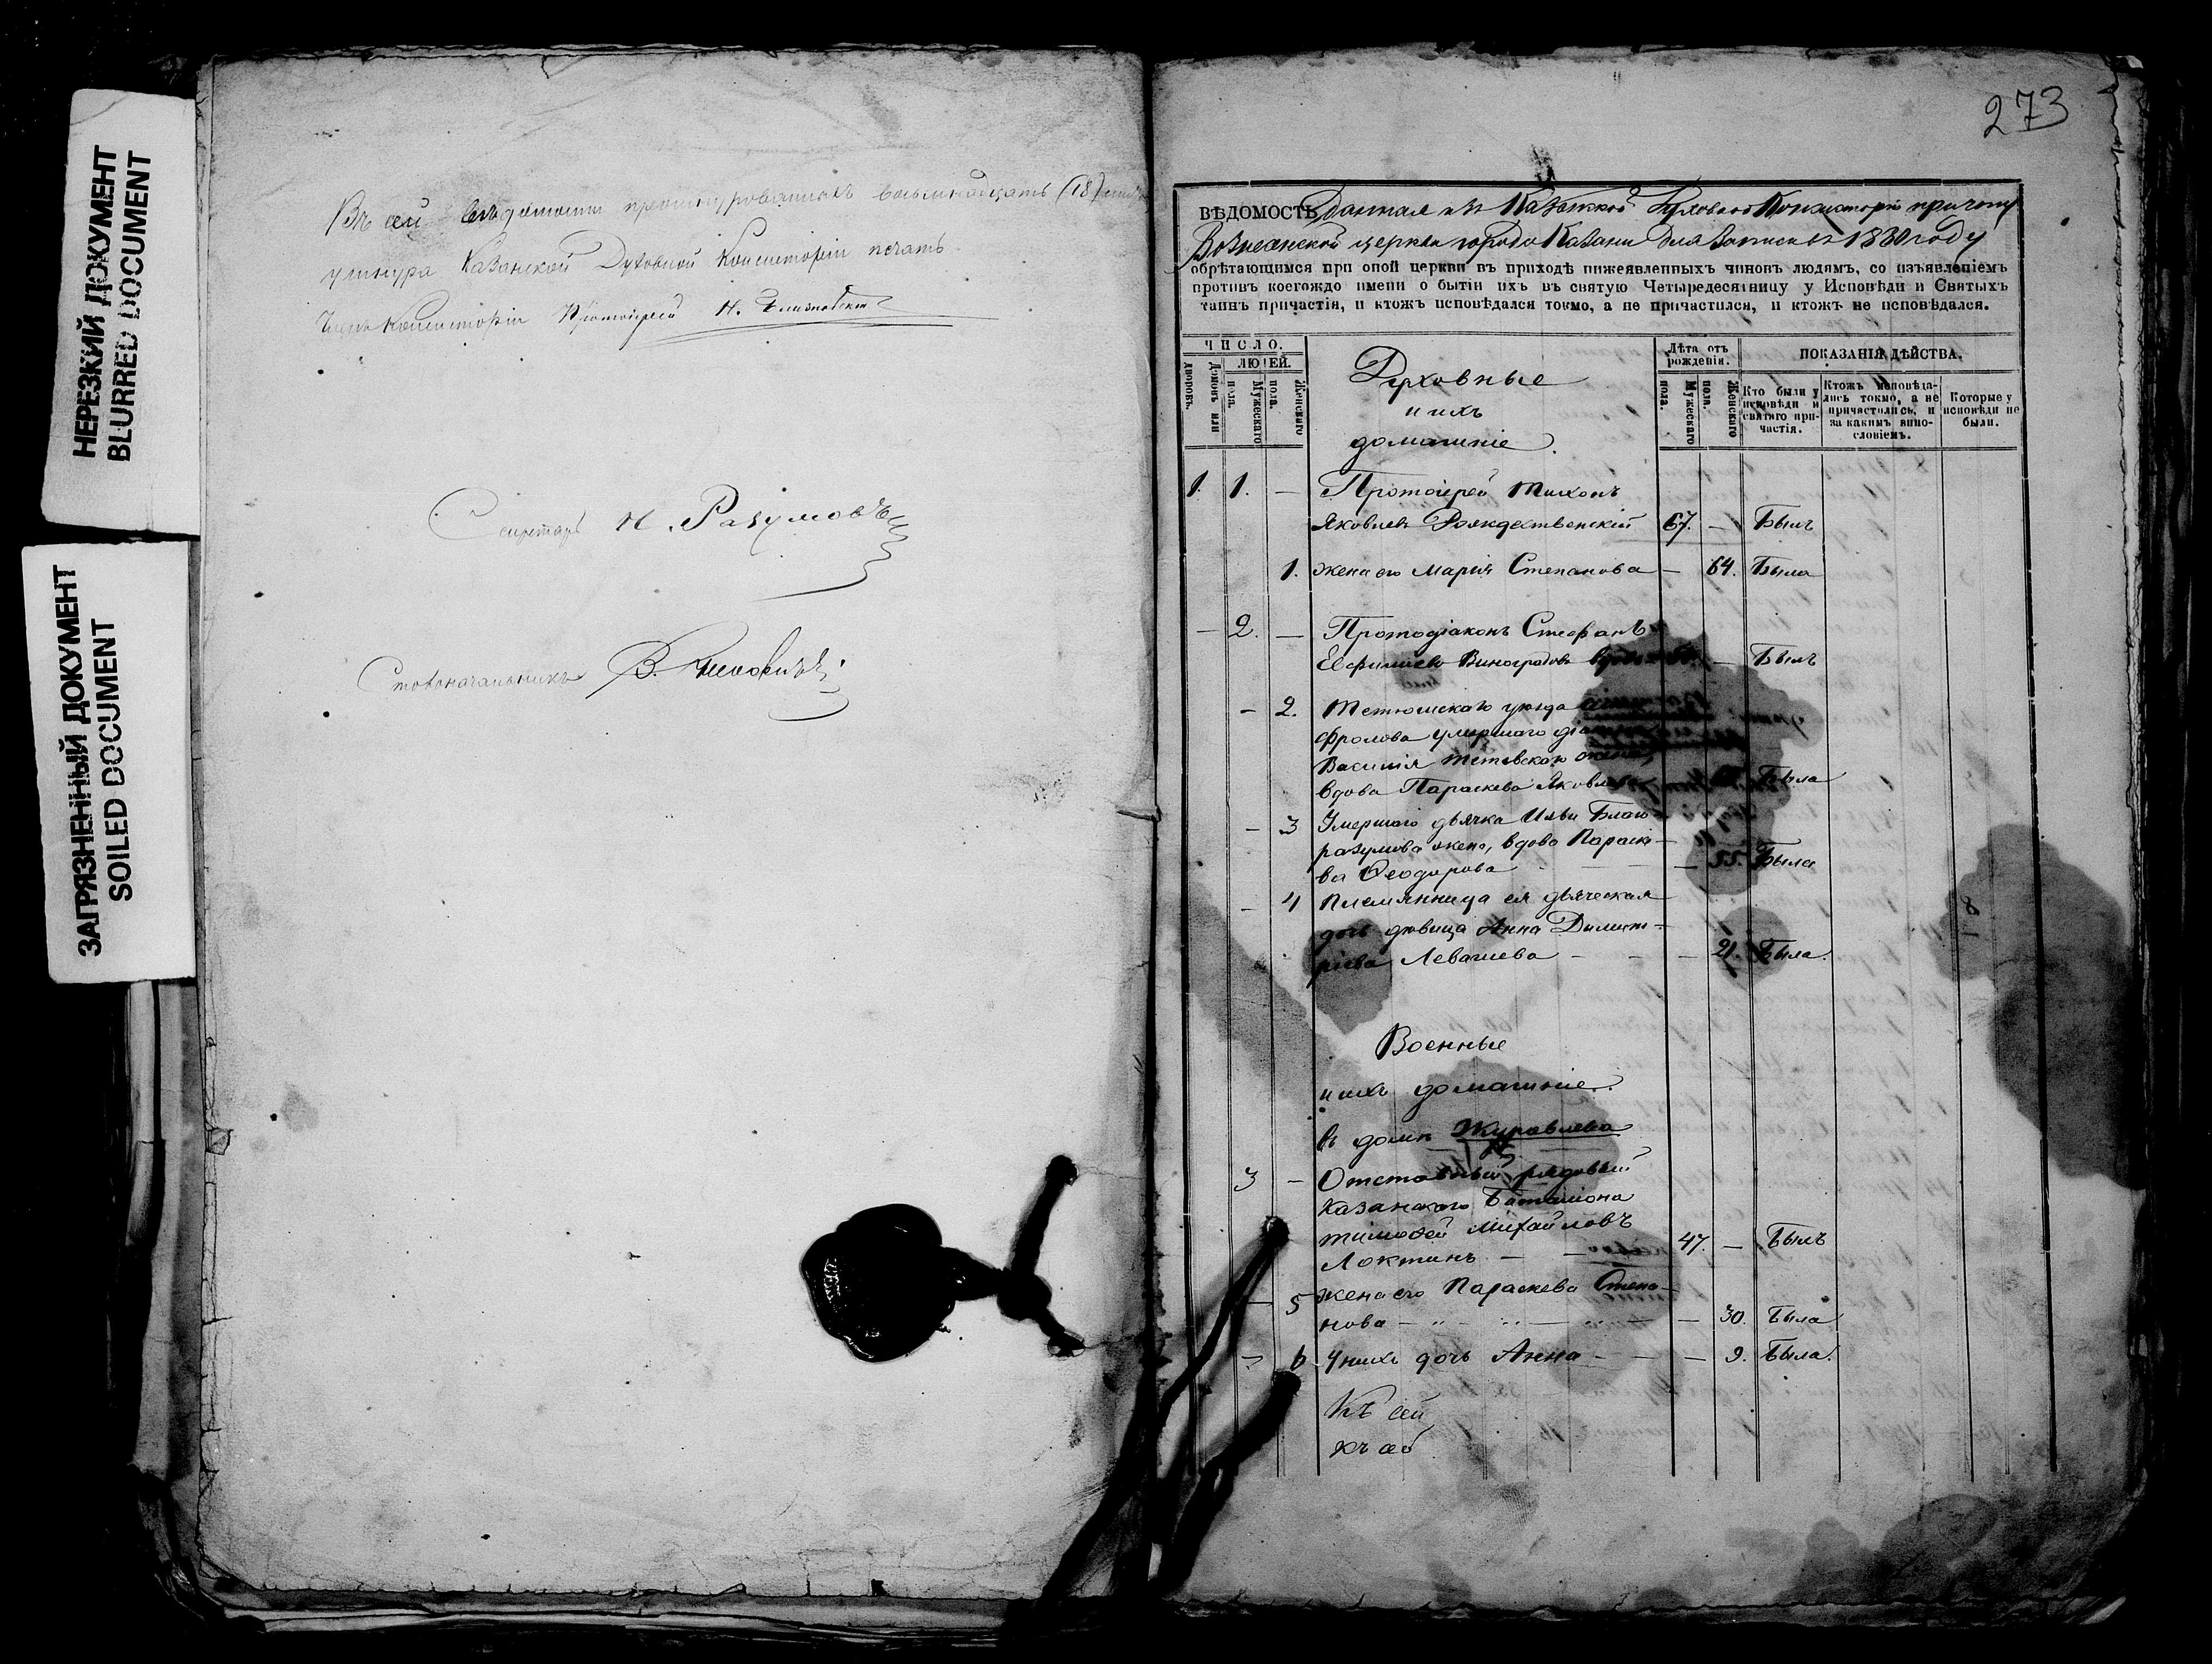 НЕРЕЗКИЙ ДОКУМЕНТ
BLURRED DOCUMENT
ЗАГРЯЗНЕННЫЙ ДОКУМЕНТ
SOILED DOCUMENT
Въ сей вѣдомости прошнурованныхъ восьмнадцать (18)
у шнура Казанской Духовной Консисторіи печать
Членъ Консисторіи Протоіерей Н.
Секретарь Н. Разумовъ
Столоначальникъ В.
273
ВѢДОМОСТЬ Данная изъ Казанской Духовной Консисторіи причту
Вознесенской церкви города Казани для записи въ 1880 году
обрѣтающимся при оной церкви въ приходѣ нижеявленныхъ чиновъ людямъ, со изъявленіемъ
противъ коегождо имени о бытіи ихъ въ святую Четыредесятницу у Исповѣди и Святыхъ
таинъ причастія, и ктожъ исповѣдался токмо, а не причастился, и ктожъ не исповѣдался.
ЧИСЛО.
ЛЮДЕЙ.
Дворовъ.
Домовъ или
Мужескаго пола.
Женскаго пола.
Духовные
и ихъ
домашніе.
Лѣта отъ рожденія.
Мужескаго пола.
Женскаго пола.
ПОКАЗАНІЯ ДѢЙСТВА.
Кто были у исповѣди и святаго причастія.
Ктожъ исповѣдались токмо, а не причастились, и за какимъ винословіемъ.
Которые у исповѣди не были.
1. 1. — Протоіерей Тихонъ
Яковлевъ Рождественскій 67. — Былъ
1. Жена его Марія Степанова — 64. Была
— 2. — Протодіаконъ Стефанъ
Евфиміевъ Виноградовъ — Былъ
— 2. Тетюшскаго уѣзда
Фролова умершаго
Василія жена,
вдова Параскева Была
— 3 Умершаго дьячка Ильи Благо
разумова жена, вдова Параске-
ва Ѳеодорова — 55. Была
— 4 Племянница ея дьяческая
дочь дѣвица Анна Димит-
ріева Левашева — — — 21. Была.
Военные
и ихъ домашніе.
въ домѣ Журавлева
3 — Отставный рядовый
Казанскаго Баталіона
Тимоѳей Михайловъ
Локтинъ — — 47. — Былъ
— 5 Жена его Параскева Степа-
нова — — — 30. Была
— 6 У нихъ дочь Анна — — — 9. Была.
Къ сей